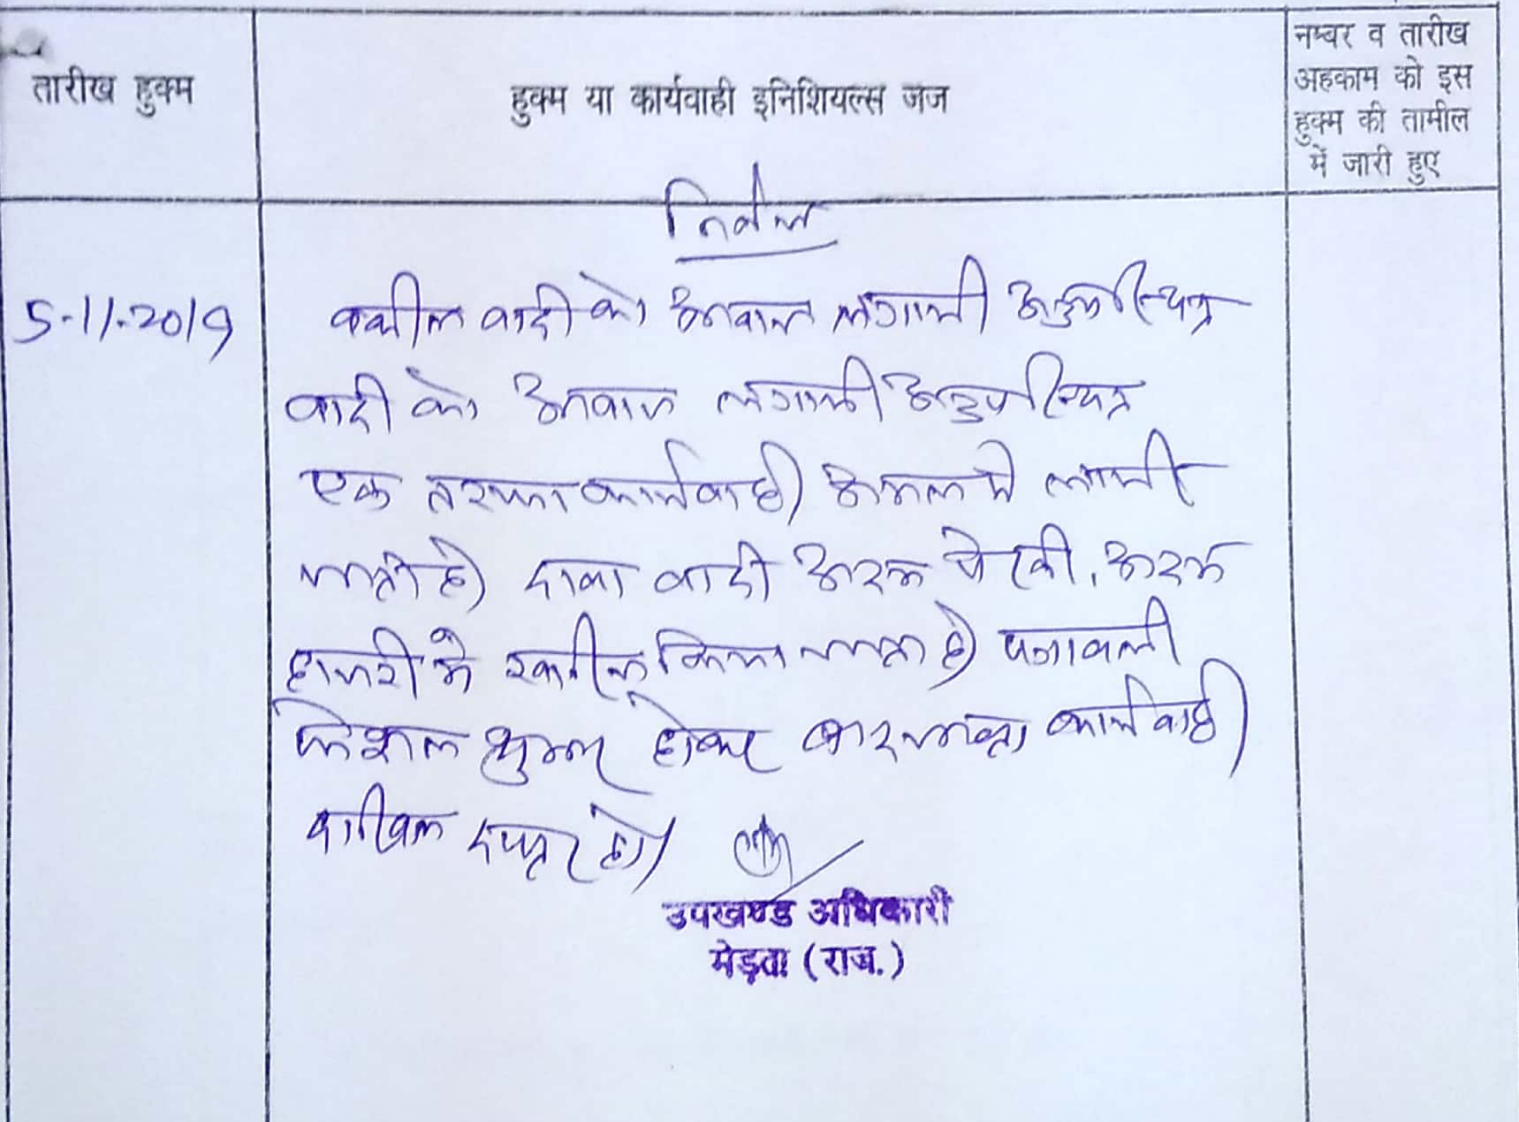 तारीख हुक्म
हुक्म या कार्यवाही इनिशियल्स जज
नम्बर व तारीख
अहकाम को इस
हुक्म की तामील
में जारी हुए
निर्णय
5-11-2019
वकील वादी को आवाज लगायी अनुपस्थित
वादी को आवाज लगायी अनुपस्थित
एक तरफा कार्यवाही अमल मे लायी
जाती है। दावा वादी अदम पेरवी, अदम
हाजरी मे खारीज किया जाता है। पत्रावली
फेशल शुमार होकर बाद कार्यवाही
दाखिल दफ्तर हो।
उपखण्ड अधिकारी
मेड़ता (राज.)